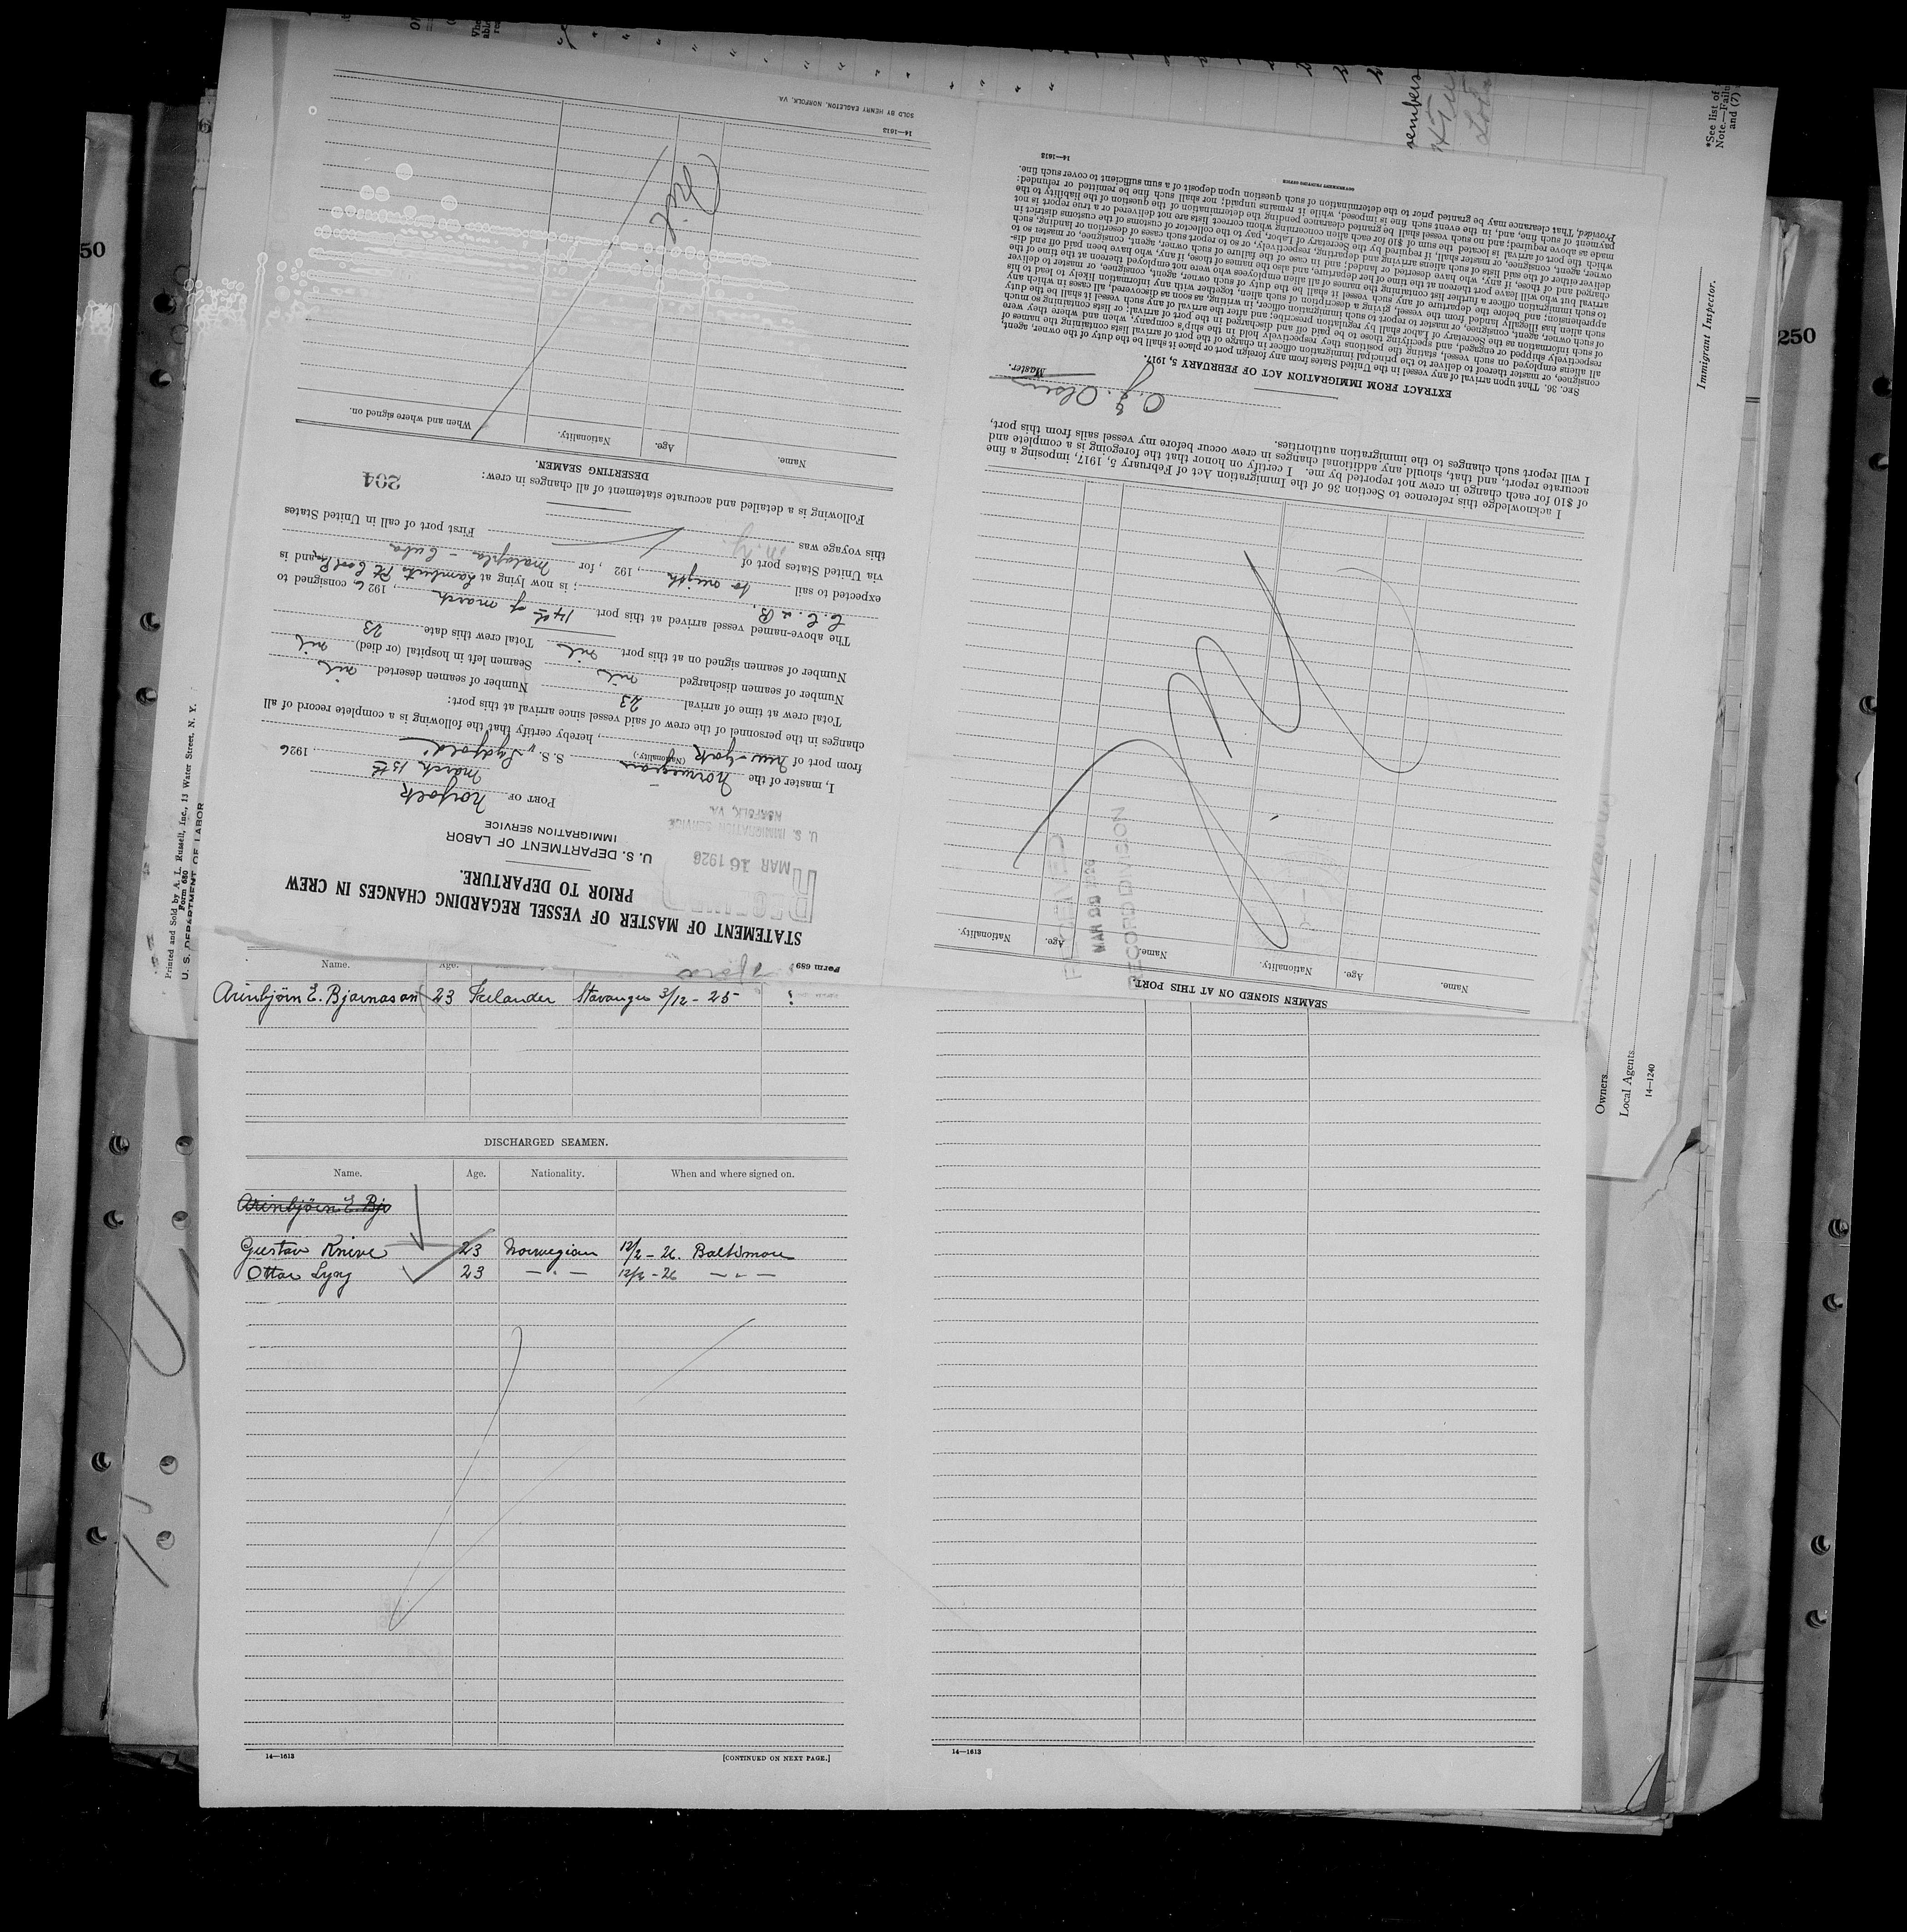 Form 689
STATEMENT OF MASTER OF VESSEL REGARDING CHANGES IN CREW
PRIOR TO DEPARTURE.
RECEIVED
MAR 16 1926
U. S. IMMIGRATION SERVICE
NORFOLK, VA.
U. S. DEPARTMENT OF LABOR
IMMIGRATION SERVICE
PORT OF Norfolk
March 15th, 1926
I, master of the Norwegian S. S.
(Nationality.)
from port of New-York, hereby certify that the following is a complete record of all
changes in the personnel of the crew of said vessel since arrival at this port:
Total crew at time of arrival 23 Number of seamen deserted nil
Number of seamen discharged nil Seamen left in hospital (or died) nil
Number of seamen signed on at this port nil Total crew this date 23
The above-named vessel arrived at this port 14th of march, 1926 consigned to
C. C. & B.; is now lying at Lamberts Pt. Coal and is
expected to sail to night, 192 , for - Cuba
via United States port of
this voyage was N.Y. First port of call in United States
Following is a detailed and accurate statement of all changes in crew:
204
DESERTING SEAMEN.
Name. Age. Nationality. When and where signed on.
Nil
14—1613
SOLD BY HENRY EAGLETON, NORFOLK, VA.
SEAMEN SIGNED ON AT THIS PORT.
Name. Age. Nationality. Name. Age. Nationality.
RECEIVED
MAR 22 1926
RECORD DIVISION
I acknowledge this reference to Section 36 of the Immigration Act of February 5, 1917, imposing a fine
of $10 for each change in crew not reported by me. I certify on honor that the foregoing is a complete and
accurate report, and that, should any additional changes in crew occur before my vessel sails from this port,
I will report such changes to the immigration authorities.
O. J. Olsen
Master.
EXTRACT FROM IMMIGRATION ACT OF FEBRUARY 5, 1917.
SEC. 36. That upon arrival of any vessel in the United States from any foreign port or place it shall be the duty of the owner, agent,
consignee, or master thereof to deliver to the principal immigration officer in charge of the port of arrival lists containing the names of
all aliens employed on such vessel, stating the positions they respectively hold in the ship's company, when and where they were
respectively shipped or engaged, and specifying those to be paid off and discharged in the port of arrival; or lists containing so much
of such information as the Secretary of Labor shall by regulation prescribe; and after the arrival of any such vessel it shall be the duty
of such owner, agent, consignee, or master to report to such immigration officer, in writing, as soon as discovered, all cases in which any
such alien has illegally landed from the vessel, giving a description of such alien, together with any information likely to lead to his
apprehension; and before the departure of any such vessel it shall be the duty of such owner, agent, consignee, or master to deliver
to such immigration officer a further list containing the names of all alien employees who were not employed thereon at the time of the
arrival but who will leave port thereon at the time of her departure, and also the names of those, if any, who have been paid off and dis-
charged and of those, if any, who have deserted or landed; and in case of the failure of such owner, agent, consignee, or master so to
deliver either of the said lists of such aliens arriving and departing, respectively, or so to report such cases of desertion or landing, such
owner, agent, consignee, or master shall, if required by the Secretary of Labor, pay to the collector of customs of the customs district in
which the port of arrival is located the sum of $10 for each alien concerning whom correct lists are not delivered or a true report is not
made as above required; and no such vessel shall be granted clearance pending the determination of the question of the liability to the
payment of such fine, and, in the event such fine is imposed, while it remains unpaid; nor shall such fine be remitted or refunded:
Provided, That clearance may be granted prior to the determination of such question upon deposit of a sum sufficient to cover such fine.
14—1613
GOVERNMENT PRINTING OFFICE
Name. Age.
Arinbjörn E. Bjarnason 23 Icelander Stavanger 3/12 - 25
DISCHARGED SEAMEN.
Name. Age. Nationality. When and where signed on.
Arinbjörn E. Bja
Gustav Knive 23 Norwegian 12/2 - 26. Baltimore
Ottar Lyng 23 — " — 12/2 - 26 — " —
14—1613 [CONTINUED ON NEXT PAGE.]
14—1613
Printed and Sold by A. L. Russell, Inc., 13 Water Street, N. Y.
Form 680
U. S. DEPARTMENT OF LABOR
Immigrant Inspector.
Owners
Local Agents
14—1240
*See list of
Note.—Failu
and (7)
50
250